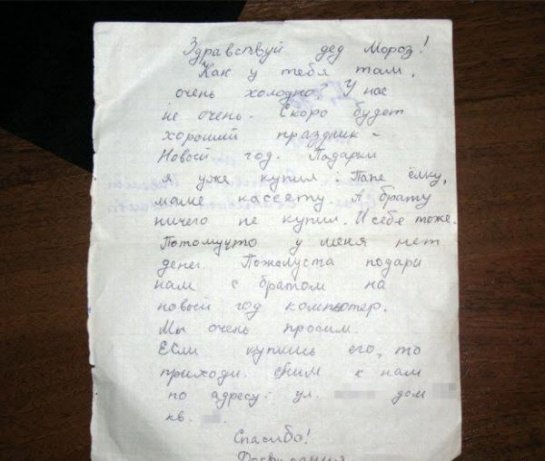 Здравствуй дед Мороз!
Как у тебя там,
очень холодно? У нас
не очень. Скоро будет
хороший праздник -
Новый год. Подарки
я уже купил: Папе ёлку,
маме кассету. А брату
ничего не купил. И себе тоже.
Потомучто у меня нет
денег. Пожалуста подари
нам с братом на
новый год компютер.
Мы очень просим.
Если купишь его, то
приходи с ним к нам
по адресу: ул. дом
кв.
Спасибо!